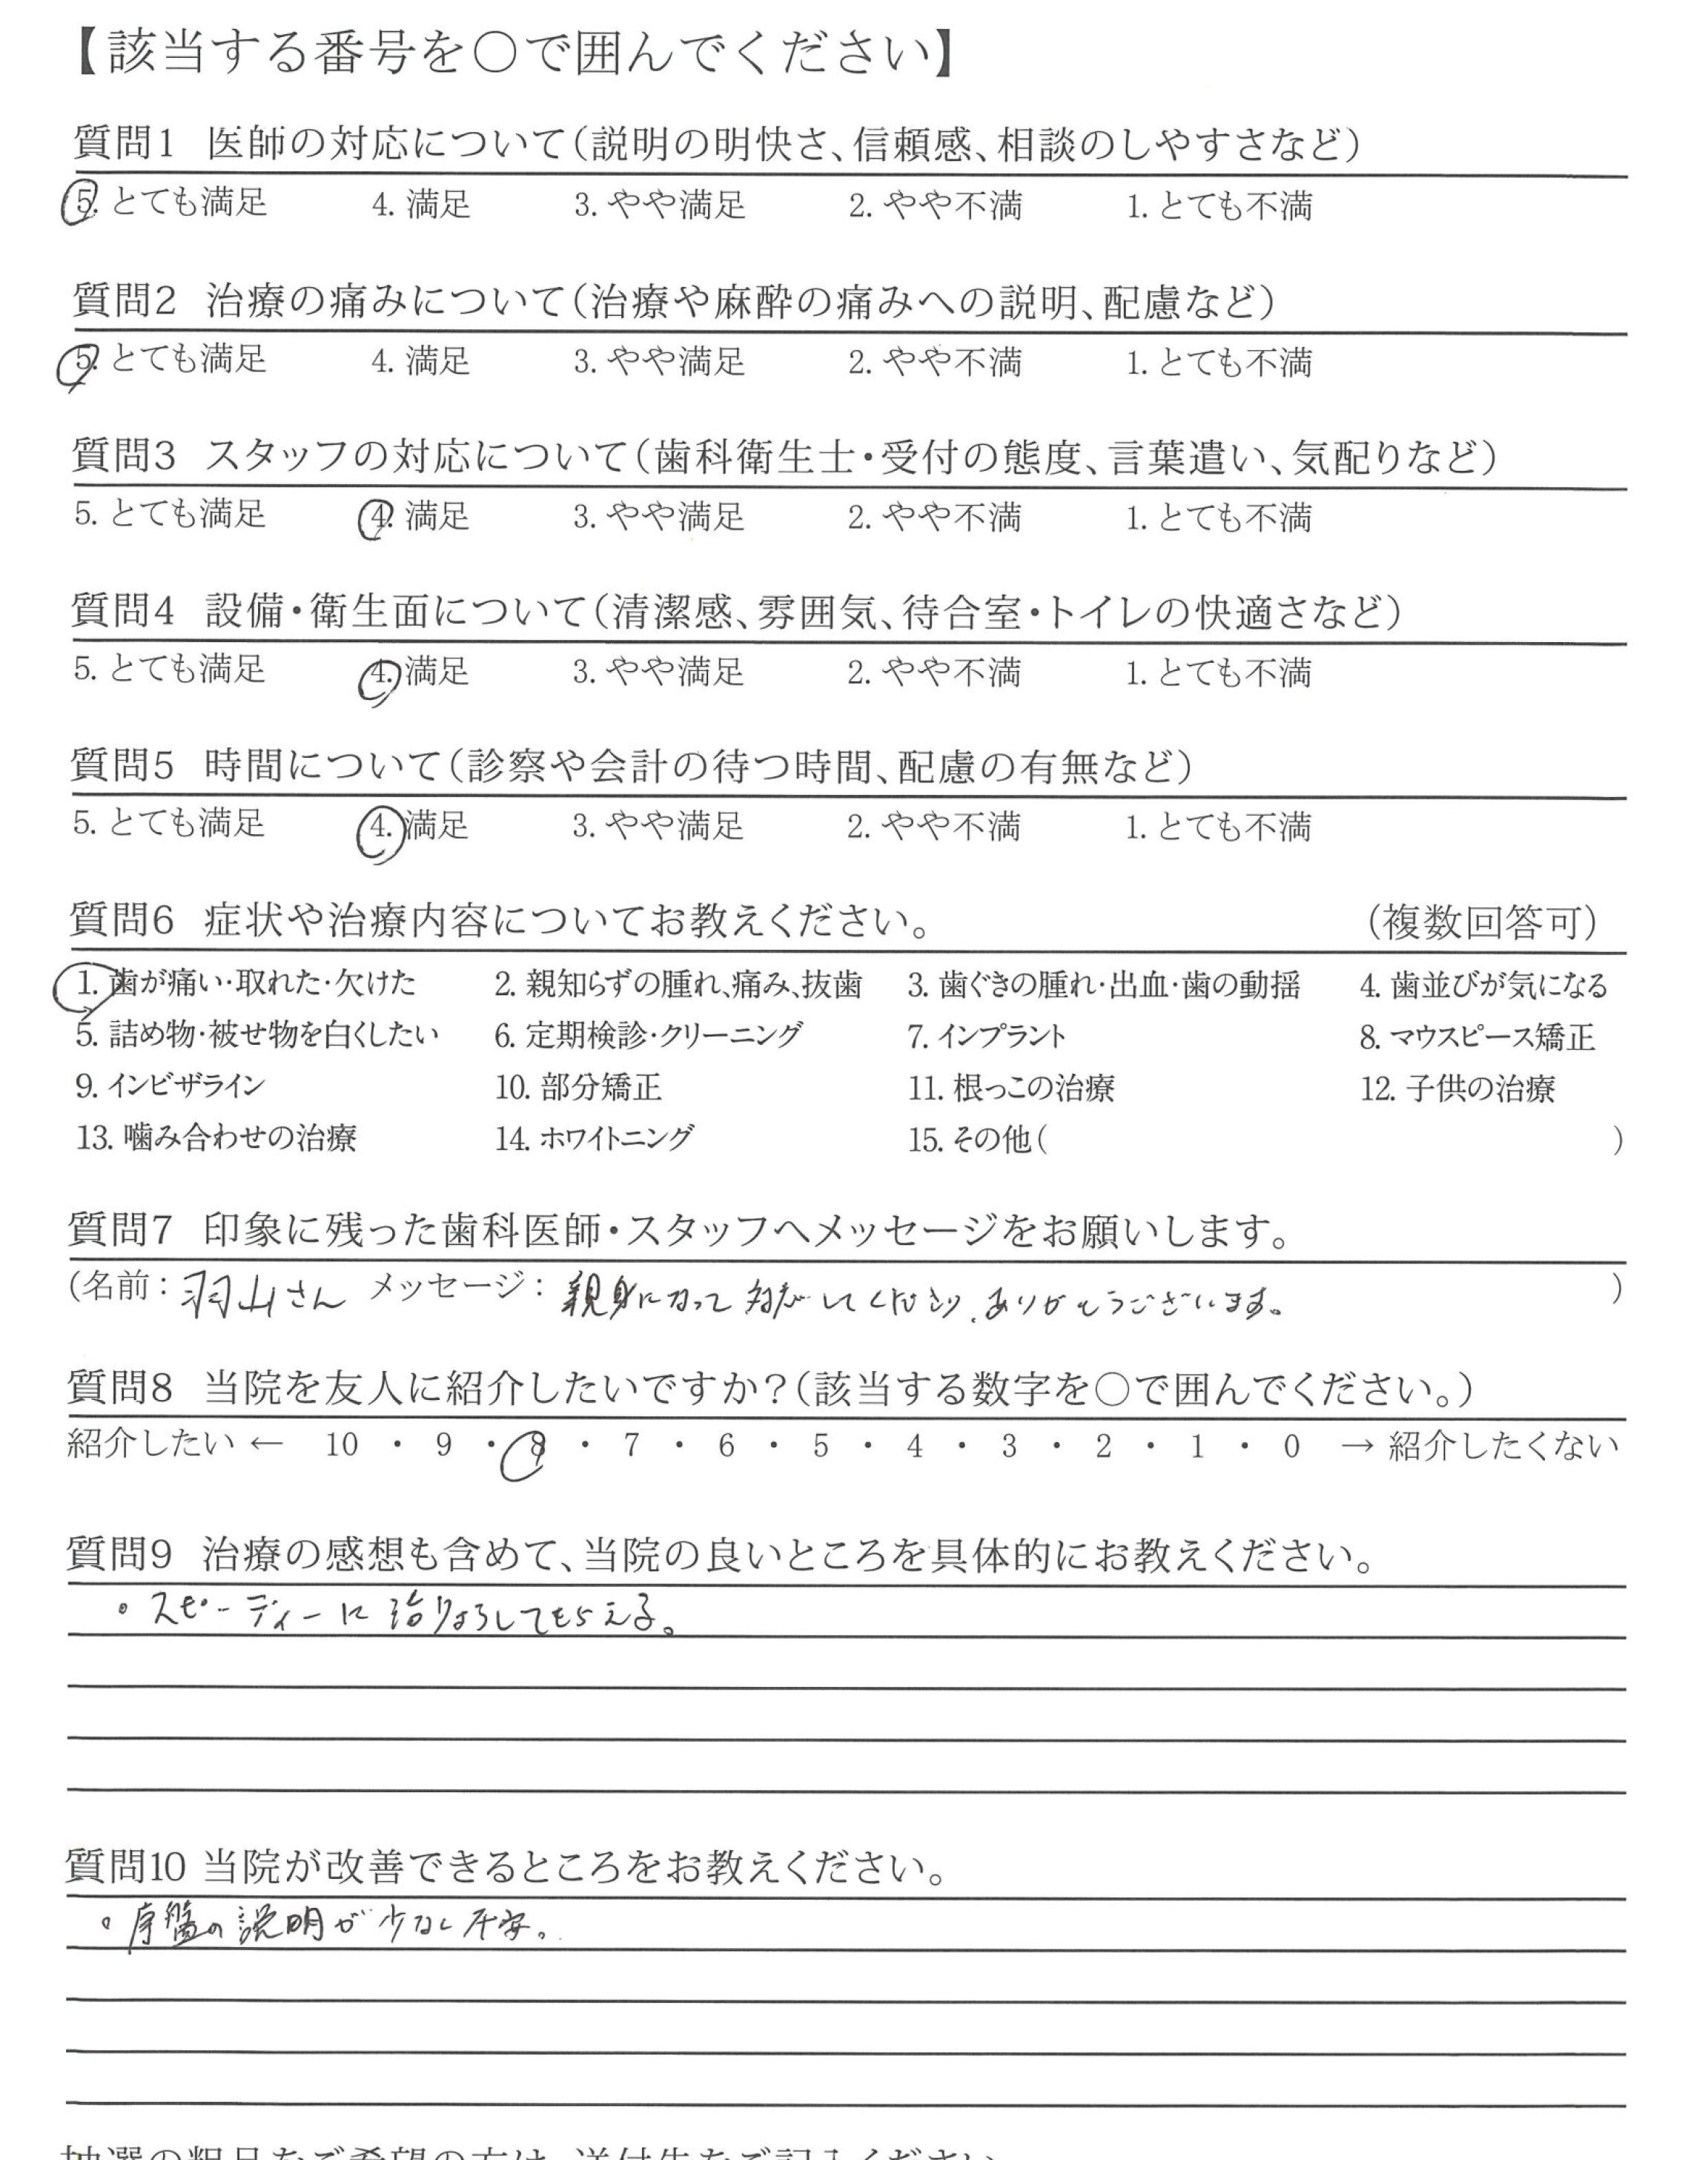 【該当する番号を○で囲んでください】
質問1 医師の対応について（説明の明快さ、信頼感、相談のしやすさなど）
5. とても満足 4. 満足 3. やや満足 2. やや不満 1. とても不満
質問2 治療の痛みについて（治療や麻酔の痛みへの説明、配慮など）
5. とても満足 4. 満足 3. やや満足 2. やや不満 1. とても不満
質問3 スタッフの対応について（歯科衛生士・受付の態度、言葉遣い、気配りなど）
5. とても満足 4. 満足 3. やや満足 2. やや不満 1. とても不満
質問4 設備・衛生面について（清潔感、雰囲気、待合室・トイレの快適さなど）
5. とても満足 4. 満足 3. やや満足 2. やや不満 1. とても不満
質問5 時間について（診察や会計の待つ時間、配慮の有無など）
5. とても満足 4. 満足 3. やや満足 2. やや不満 1. とても不満
質問6 症状や治療内容についてお教えください。 （複数回答可）
1. 歯が痛い・取れた・欠けた 2. 親知らずの腫れ、痛み、抜歯 3. 歯ぐきの腫れ・出血・歯の動揺 4. 歯並びが気になる
5. 詰め物・被せ物を白くしたい 6. 定期検診・クリーニング 7. インプラント 8. マウスピース矯正
9. インビザライン 10. 部分矯正 11. 根っこの治療 12. 子供の治療
13. 噛み合わせの治療 14. ホワイトニング 15. その他（ ）
質問7 印象に残った歯科医師・スタッフへメッセージをお願いします。
（名前：羽山さん メッセージ：親身になって対応してくださり、ありがとうございます。 ）
質問8 当院を友人に紹介したいですか？（該当する数字を○で囲んでください。）
紹介したい ← 10 ・ 9 ・ 8 ・ 7 ・ 6 ・ 5 ・ 4 ・ 3 ・ 2 ・ 1 ・ 0 → 紹介したくない
質問9 治療の感想も含めて、当院の良いところを具体的にお教えください。
。スピーディーに治りょうしてもらえる。
質問10 当院が改善できるところをお教えください。
。序盤の説明が少なく不安。
抽選の粗品をご希望の方は、送付先をご記入ください。